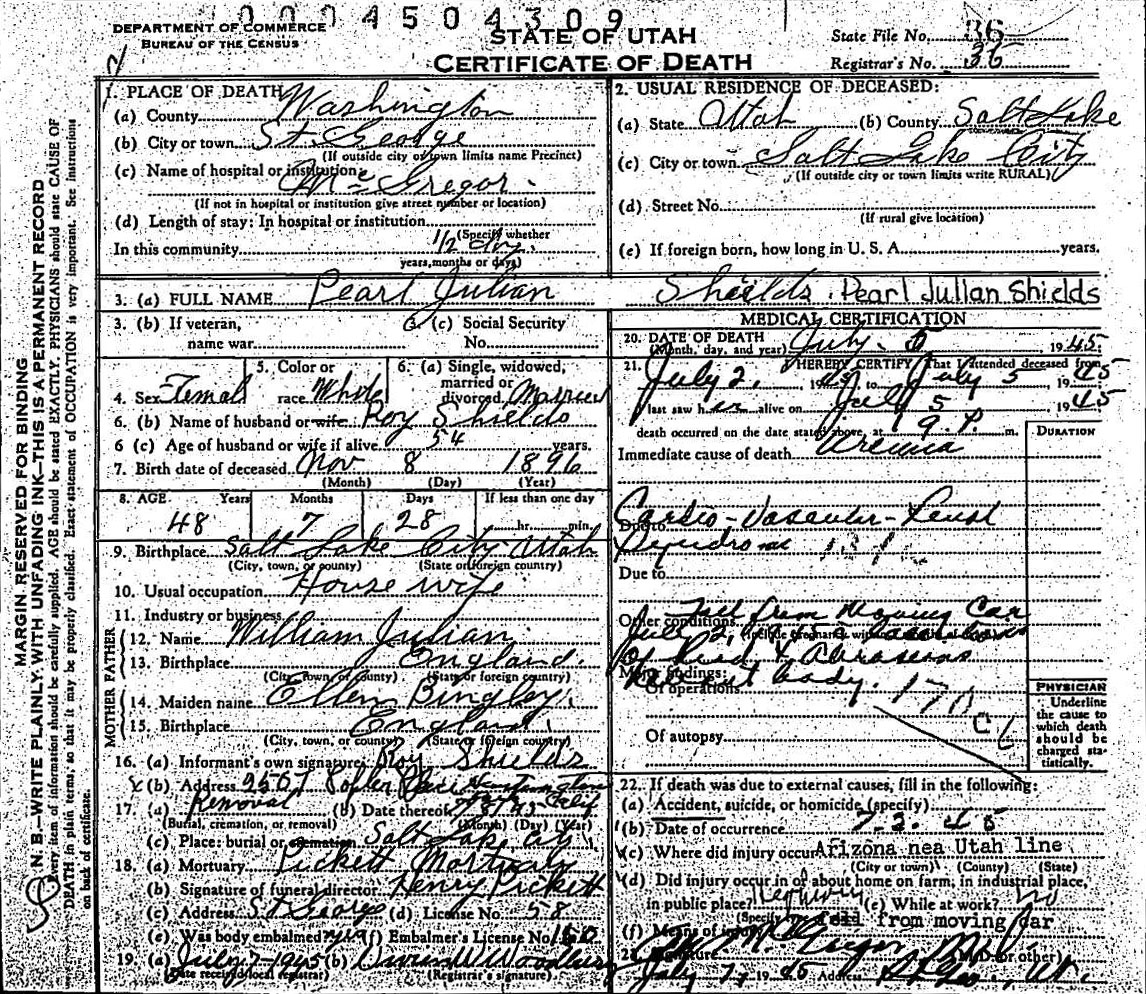 0004504309
DEPARTMENT OF COMMERCE
BUREAU OF THE CENSUS
STATE OF UTAH
CERTIFICATE OF DEATH
State File No. 36
Registrar's No. 36
MARGIN RESERVED FOR BINDING
N. B.—WRITE PLAINLY, WITH UNFADING INK—THIS IS A PERMANENT RECORD
Every item of information should be carefully supplied. AGE should be stated EXACTLY. PHYSICIANS should state CAUSE OF
DEATH in plain terms, so that it may be properly classified. Exact statement of OCCUPATION is very important. See instructions
on back of certificate.
1. PLACE OF DEATH
(a) County Washington
(b) City or town St. George
(If outside city or town limits name Precinct)
(c) Name of hospital or institution:
McGregor
(If not in hospital or institution give street number or location)
(d) Length of stay: In hospital or institution
(Specify whether
In this community 1/2 day.
years, months or days)
2. USUAL RESIDENCE OF DECEASED:
(a) State Utah (b) County Salt Lake
(c) City or town Salt Lake City
(If outside city or town limits write RURAL)
(d) Street No.
(If rural give location)
(e) If foreign born, how long in U. S. A. years.
3. (a) FULL NAME Pearl Julian Shields. Pearl Julian Shields
3. (b) If veteran,
name war
3. (c) Social Security
No.
4. Sex Femal
5. Color or
race White
6. (a) Single, widowed,
married or
divorced Married
6. (b) Name of husband or wife Roy Shields
6 (c) Age of husband or wife if alive 54 years.
7. Birth date of deceased Nov 8 1896
(Month) (Day) (Year)
8. AGE Years Months Days If less than one day
48 7 28 hr. min.
9. Birthplace Salt Lake City Utah
(City, town, or county) (State or foreign country)
10. Usual occupation House wife
11. Industry or business
FATHER
12. Name William Julian
13. Birthplace England.
(City, town, or county) (State or foreign country)
MOTHER
14. Maiden name Ellen Bingley
15. Birthplace England
(City, town, or county) (State or foreign country)
16. (a) Informant's own signature Roy Shields
(b) Address 2567 Calif
17. (a) Removal (b) Date thereof
(Burial, cremation, or removal) (Month) (Day) (Year)
(c) Place: burial or cremation Salt Lake City
18. (a) Mortuary Pickett Mortuary
(b) Signature of funeral director Henry Pickett
(c) Address St George (d) License No. 58
(e) Was body embalmed? (f) Embalmer's License No.
19. (a) July 7 1945 (b)
(Date received local registrar) (Registrar's signature)
MEDICAL CERTIFICATION
20. DATE OF DEATH
(Month, day, and year) July 5 1945.
21. I HEREBY CERTIFY That I attended deceased from
July 2, 1945 to July 5 1945
last saw her alive on July 5 1945
death occurred on the date stated above, at 9 P. m.
DURATION
Immediate cause of death Uremia
Due to Cardio-Vascular-Renal
Due to
Other conditions Fall from Moving Car
(Include pregnancy within 3 months of death)
July 2,
of Head & Abrasions
Major findings: body.
Of operations 170
Of autopsy
PHYSICIAN
Underline
the cause to
which death
should be
charged statistically.
22. If death was due to external causes, fill in the following:
(a) Accident, suicide, or homicide (specify)
(b) Date of occurrence 45
(c) Where did injury occur Arizona nea Utah line
(City or town) (County) (State)
(d) Did injury occur in or about home on farm, in industrial place,
in public place? (e) While at work? No
(f) Means of injury from moving car
23. Signature McGregor (M.D. or other)
July 7, 1945 Address St Geo, Ut.